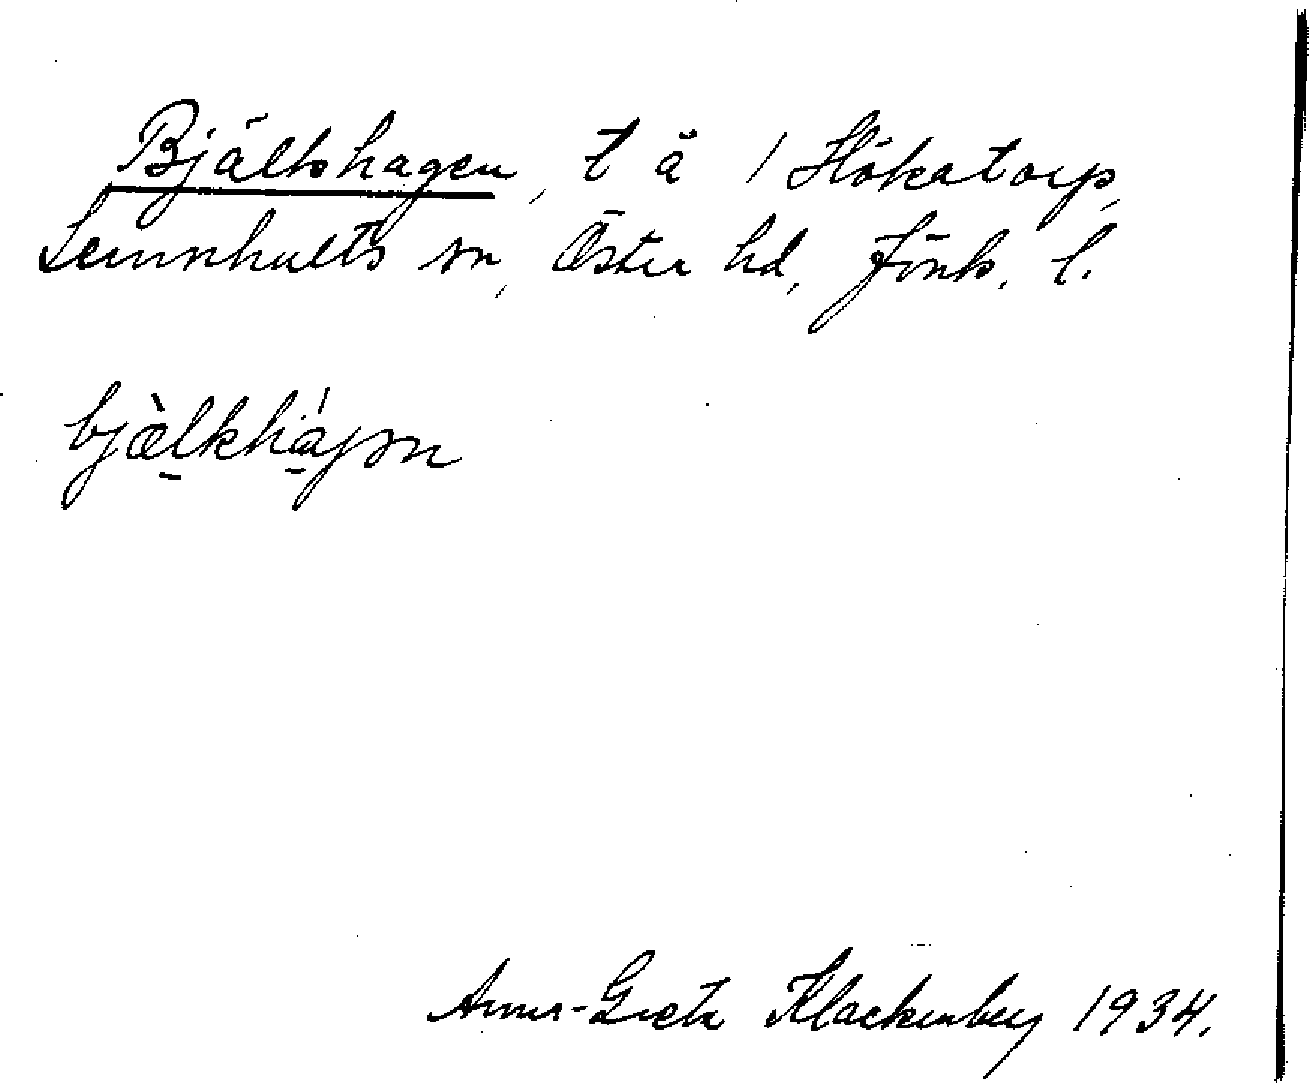 Bjälkhagen, t å 1 Hökatorp,
Lemnhults sn, Öster hd, Jönk. l.
bjæ̀lkháɡən
Anna-Greta Klackenberg 1934.